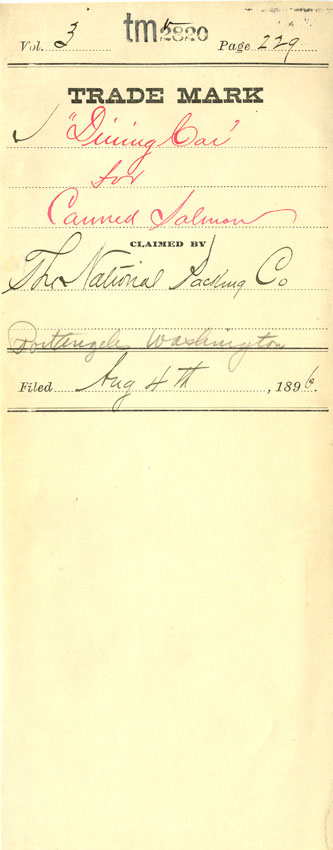 Vol. 3 tm 2820 Page 229
TRADE MARK
"Dining Car"
for
Canned Salmon
CLAIMED BY
The National Packing Co
Portangeles Washington
Filed Aug 4th, 1896.